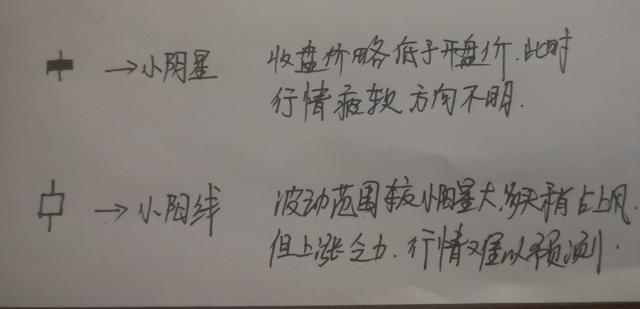 →小阴星 收盘价略低于开盘价.此时
行情疲软方向不明.
→小阳线 波动范围较小阳星大,多头稍占上风.
但上涨乏力.行情又难以预测.